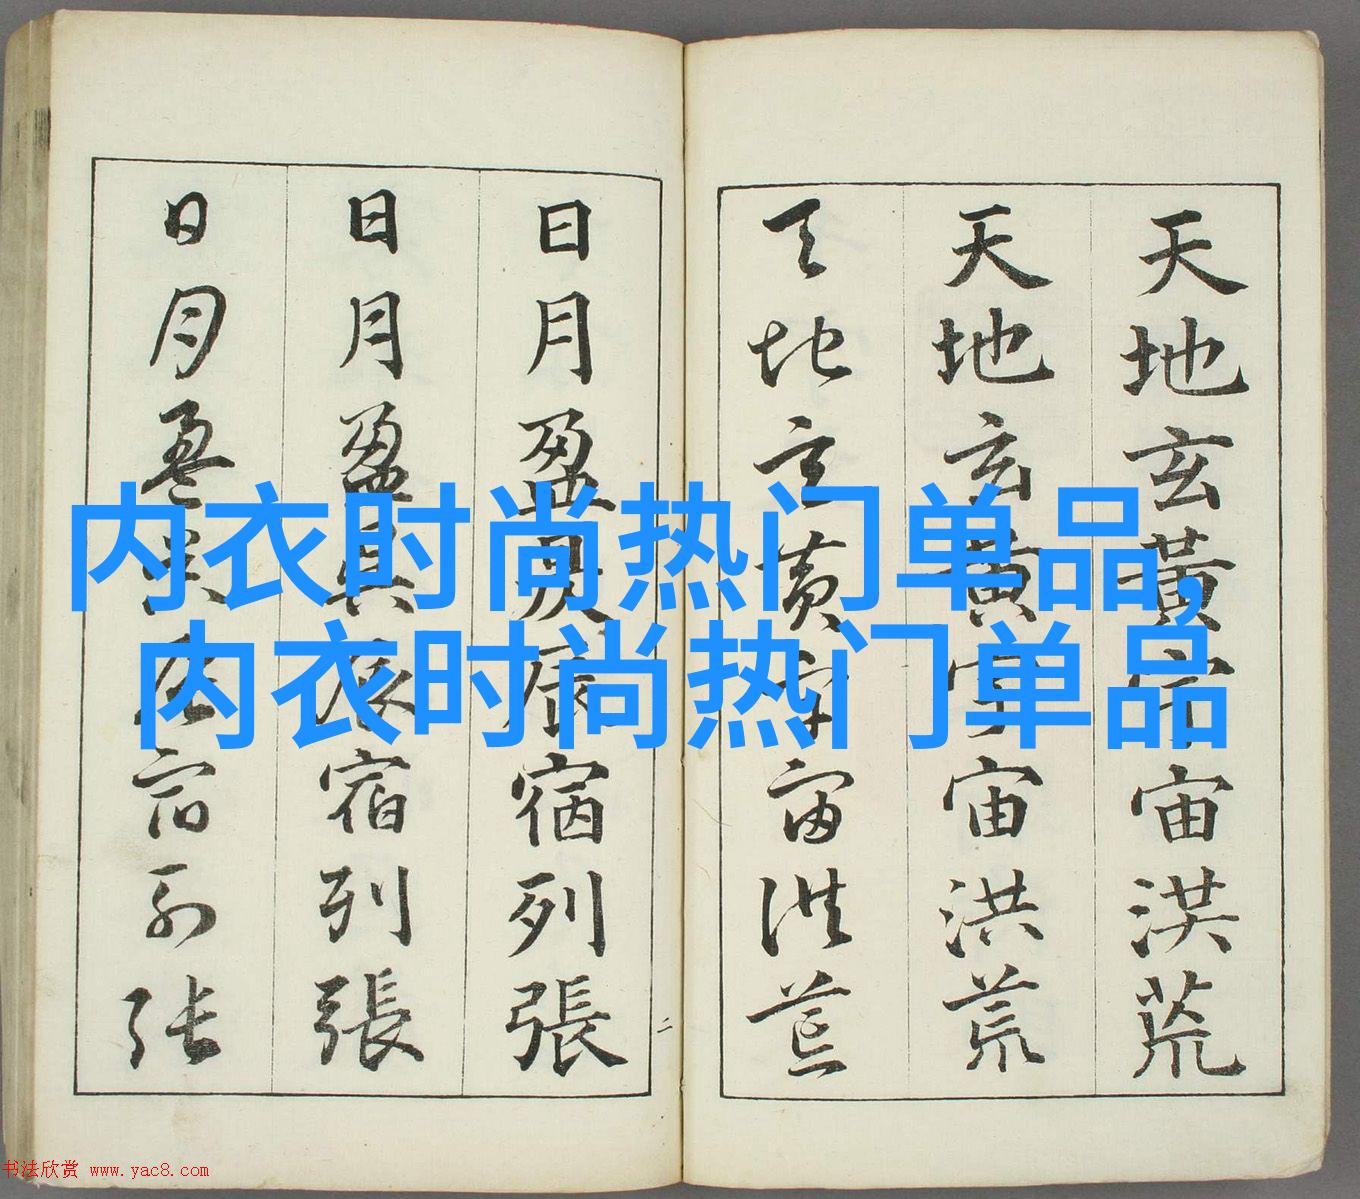 天地玄黃宇宙洪荒
天地玄黃宇宙洪荒
天地玄黃宇宙洪荒
日月盈昃辰宿列張
日月盈昃辰宿列張
日月盈昃辰宿列張
二
内衣时尚热门单品,
内衣时尚热门单品
书法欣赏 www.yac8.com